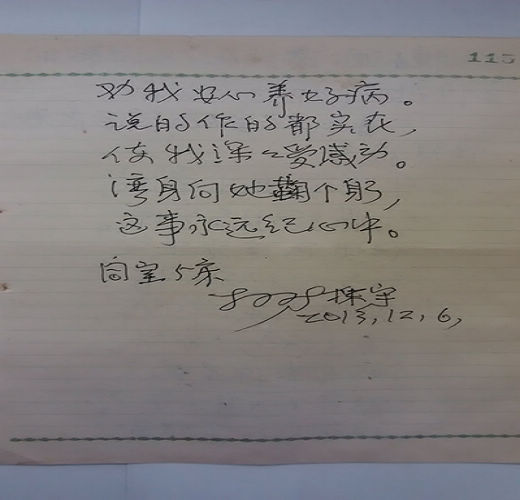 115
劝我安心养好病。
说的作的都实在,
使我深深受感动。
湾身向她鞠个躬,
这事永远纪心中。
同室5床
2013,12,6,